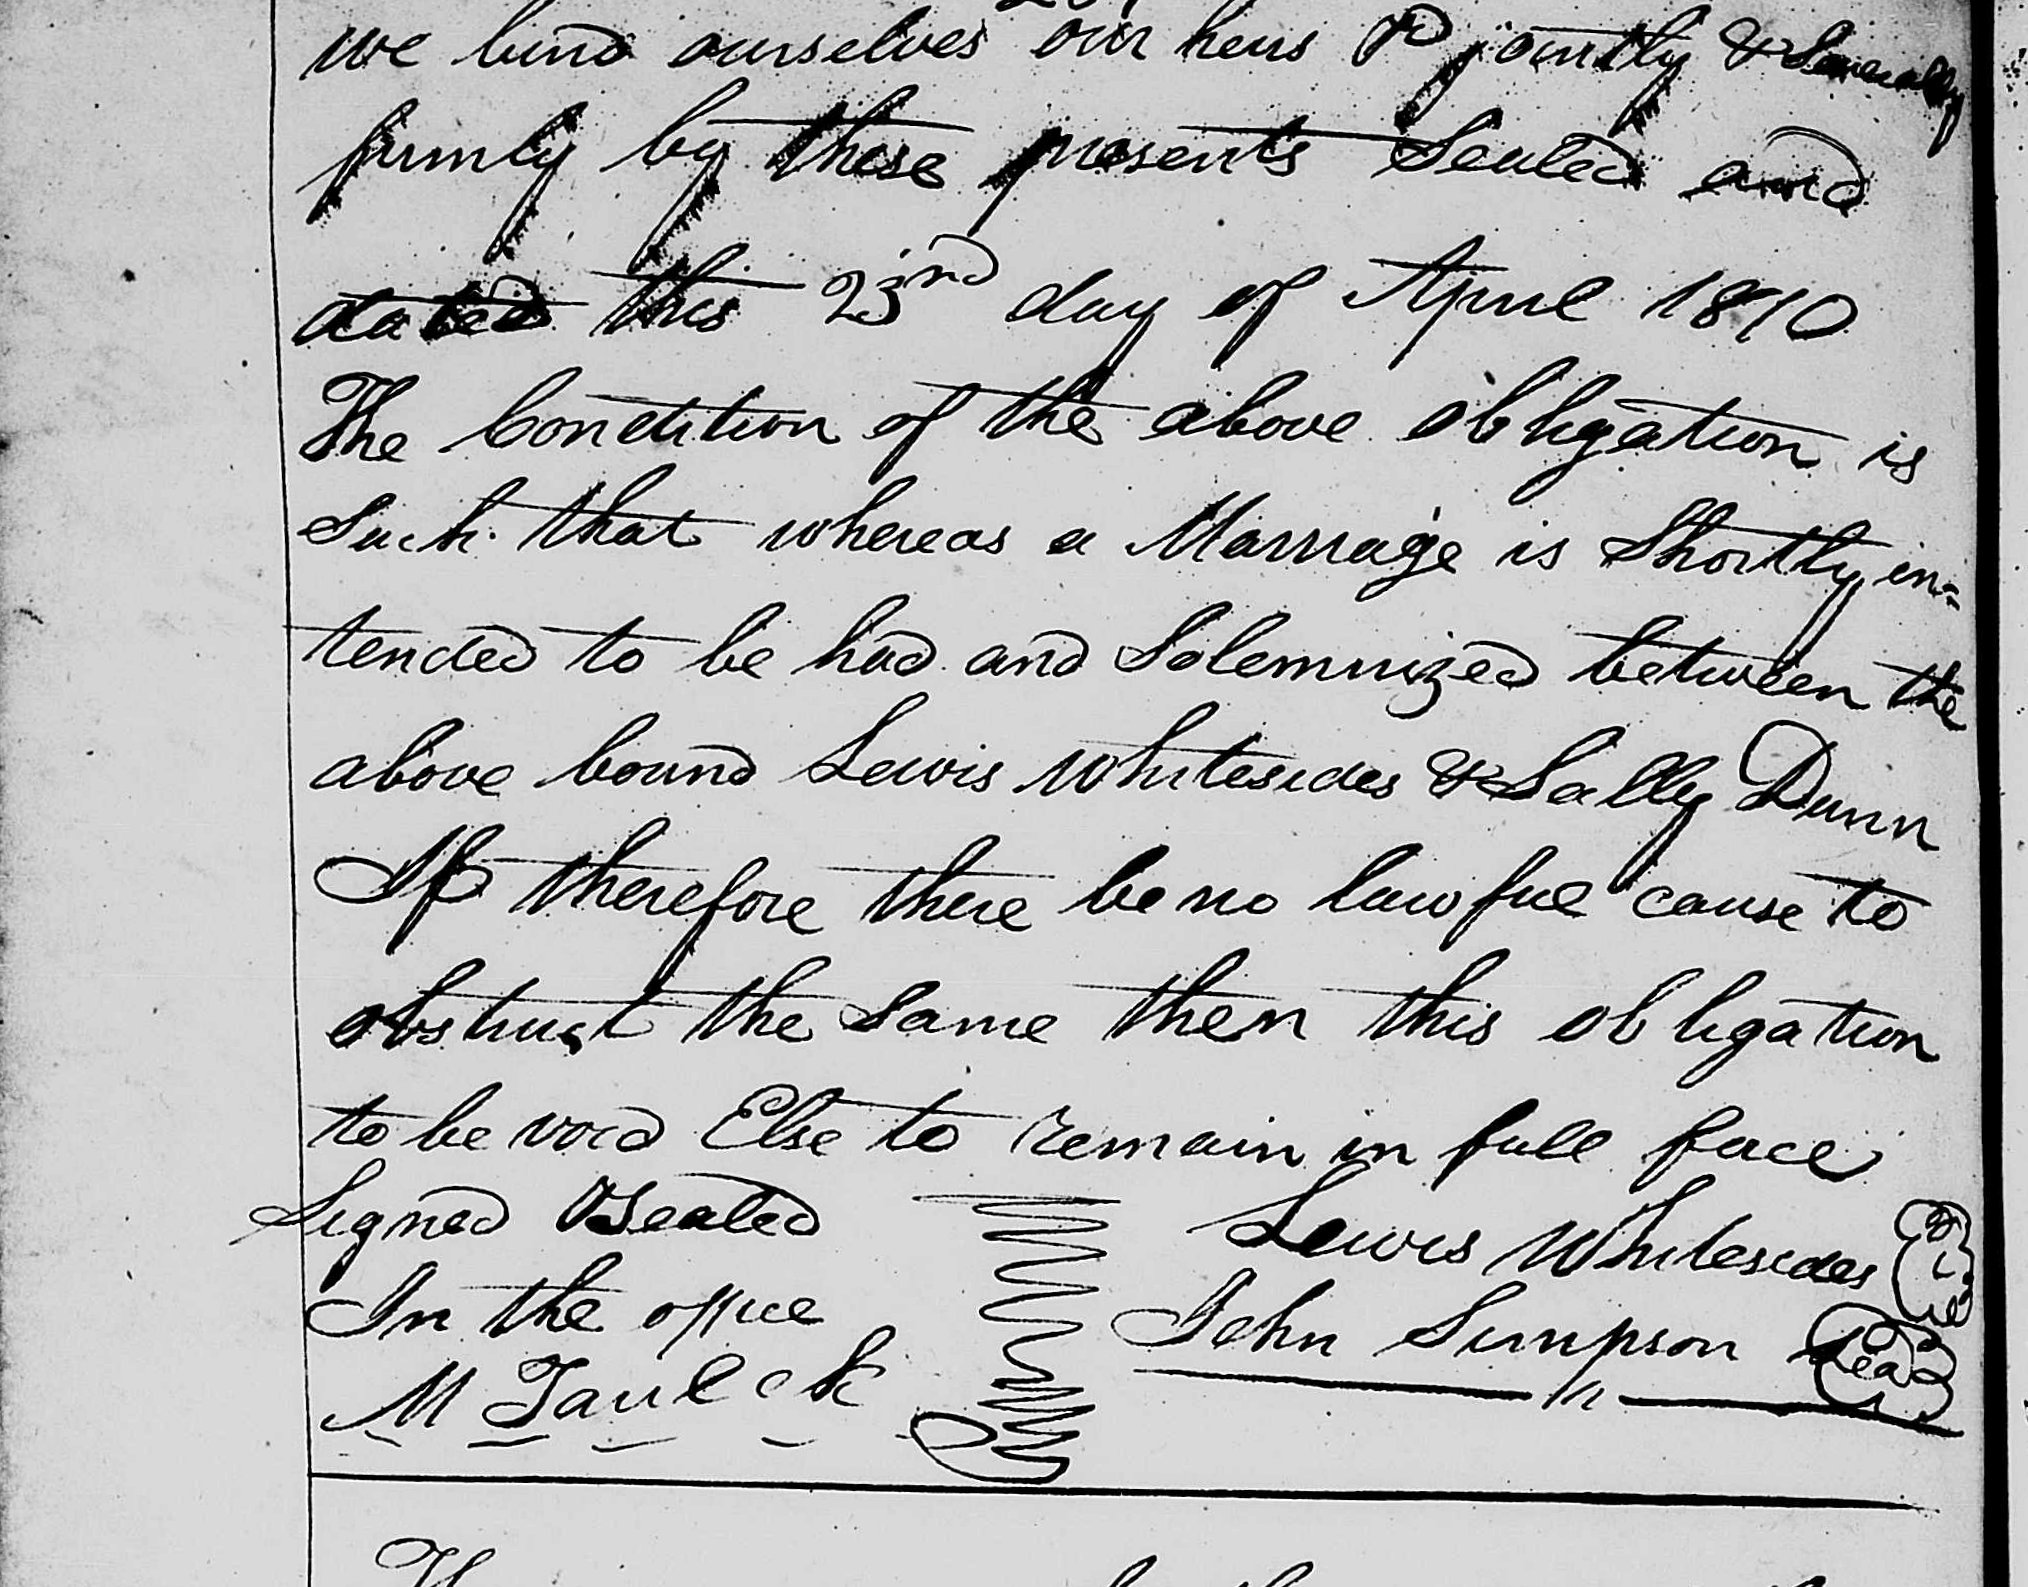 we bind ourselves our heirs &c jointly & Severally
firmly by these presents Sealed and
dated this 23rd day of April 1810
The Condition of the above obligation is
Such that whereas a Marriage is Shortly in=
tended to be had and Solemnized between the
above bound Lewis Whitesides & Sally Dunn
If therefore there be no lawful cause to
obstruct the Same then this obligation
to be void Else to remain in full force
Signed & Sealed
In the office
M Taul c k
Lewis Whitesides
John Simpson Seal